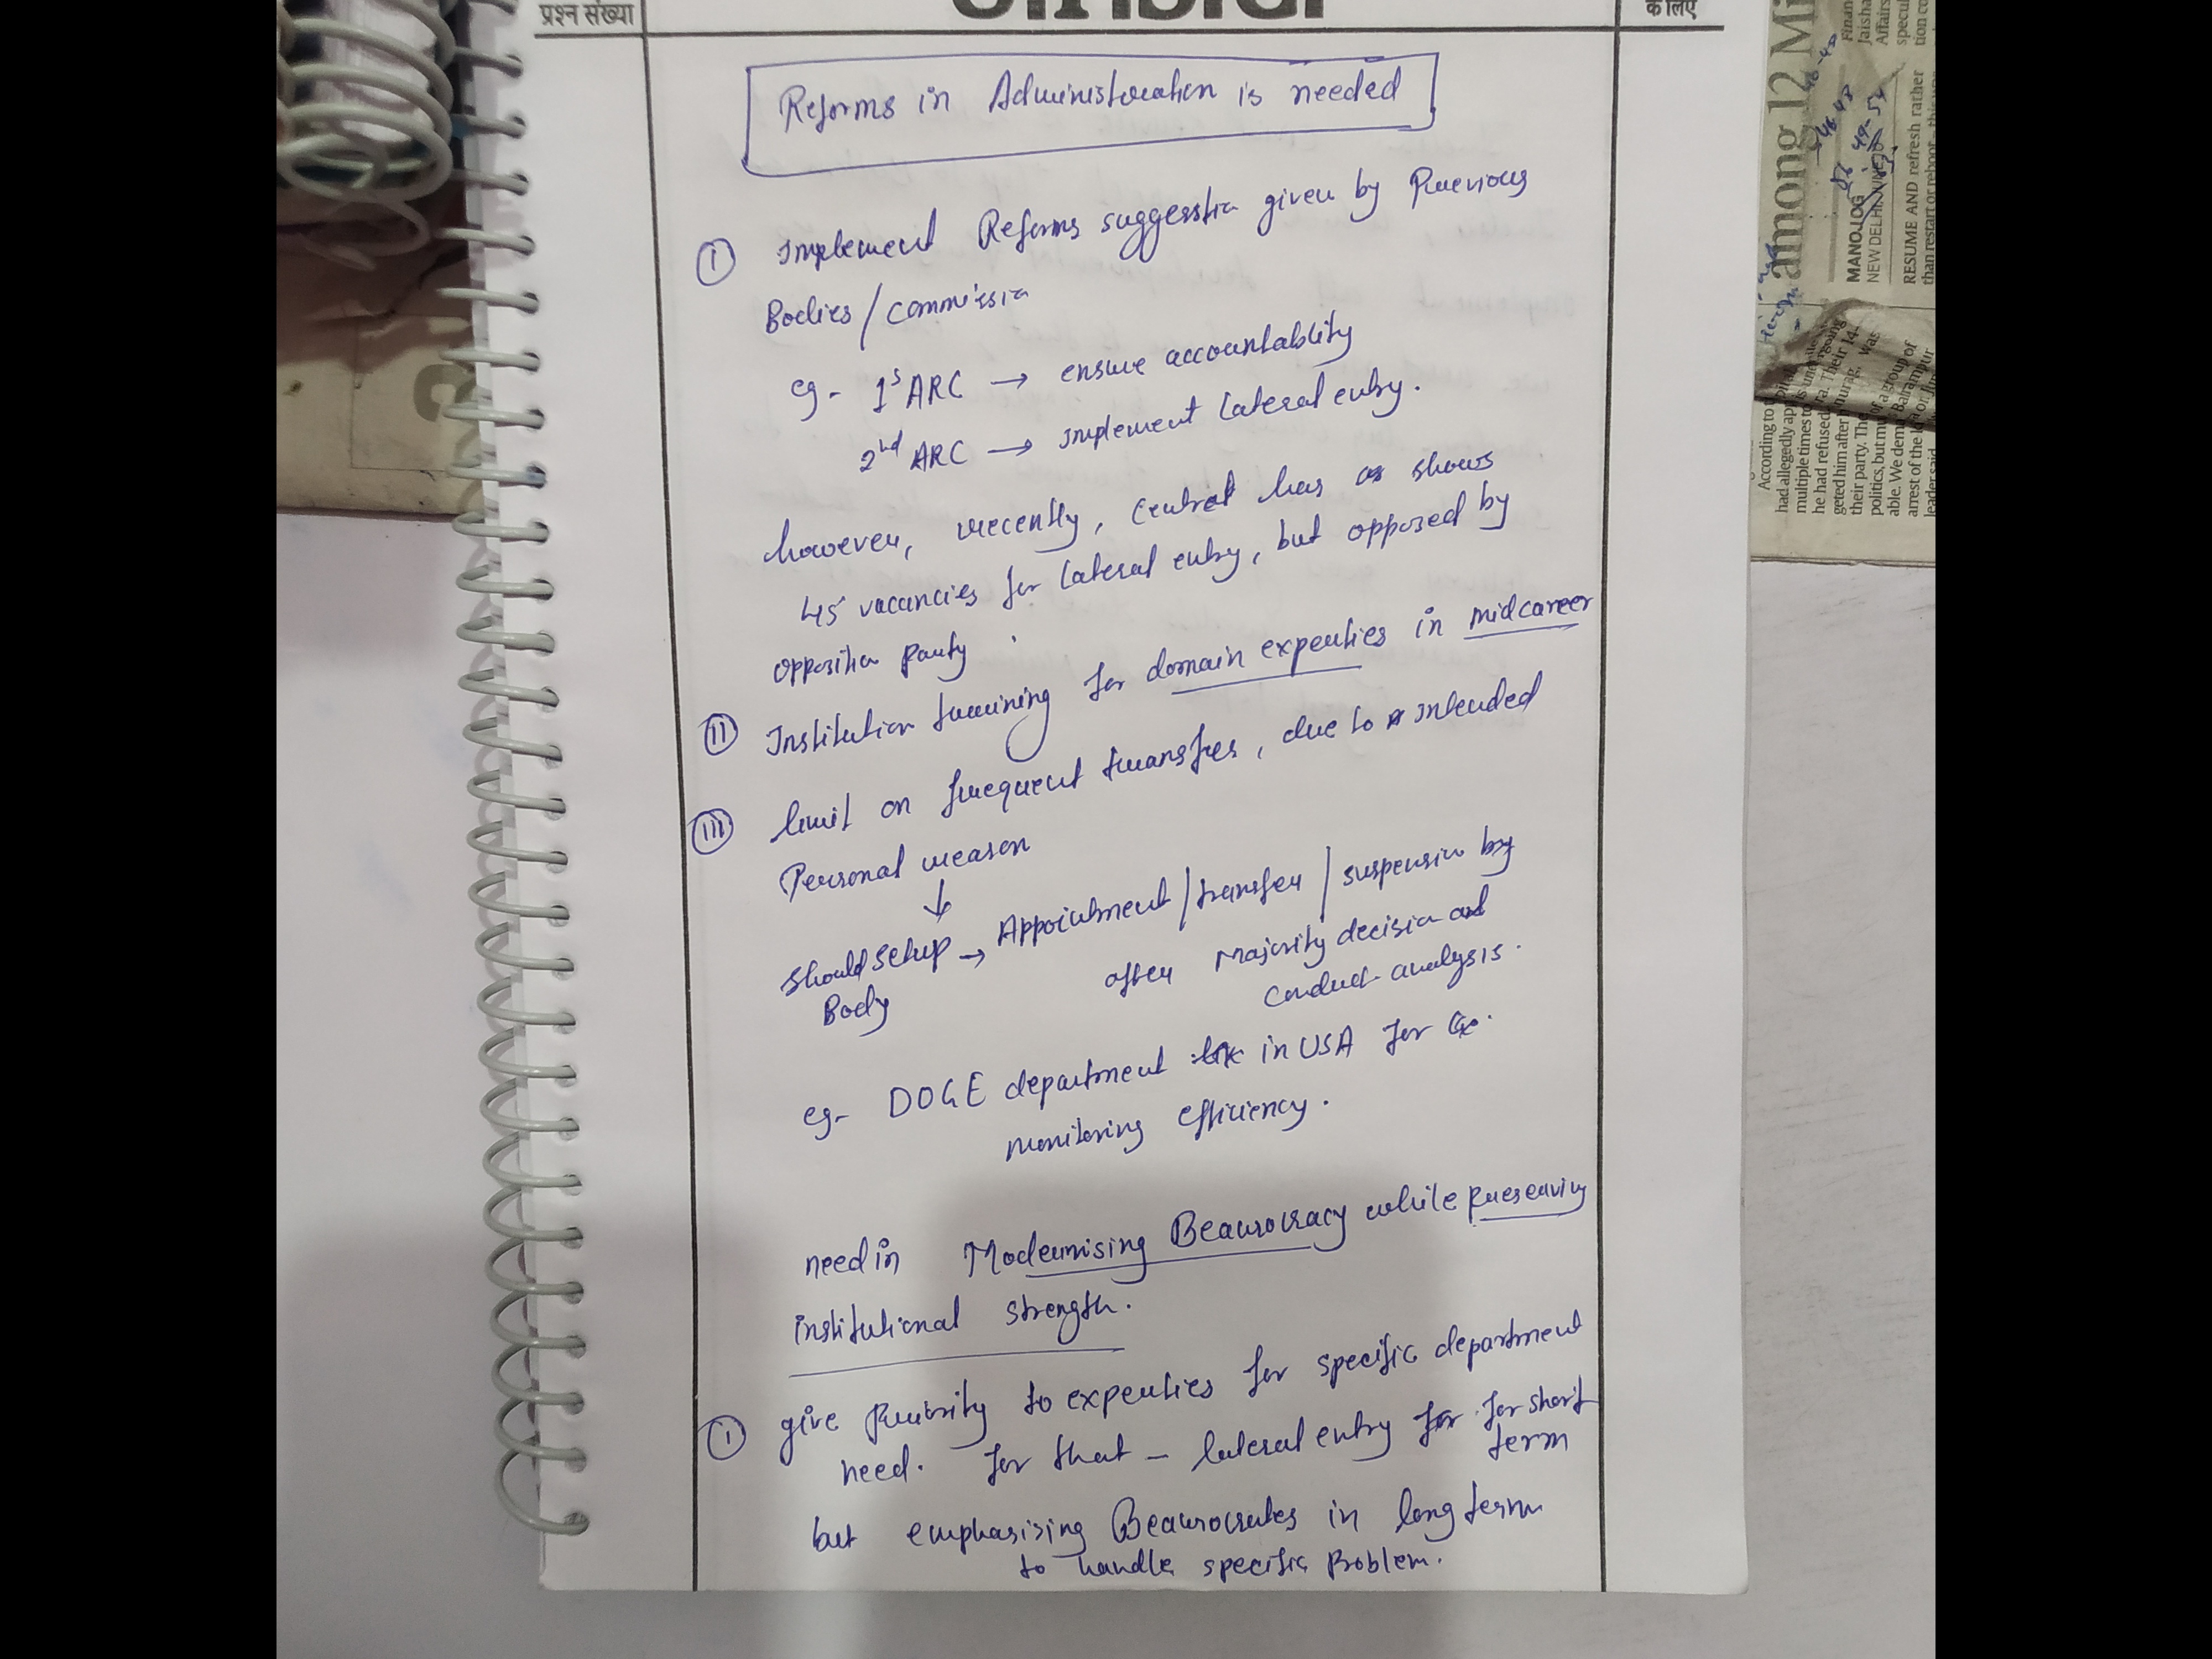 प्रश्न संख्या
के लिए
Reforms in Administration is needed
(I) Implement Reforms suggesstion given by Previous
Bodies / commission
eg- 1s ARC → ensure accountablity
2nd ARC → Implement lateral entry.
however, recently, central has shows
45 vacancies for lateral entry, but opposed by
opposition Party
(II) Institution training for domain experties in midcareer
(III) limit on frequent transfres, due to intended
Personal reason
↓
should setup Body → Appointment / transfer / suspension by
after Majority decision and
conduct analysis.
eg- DOGE department in USA for
monitoring efficiency.
need in Modernising Beaurocracy while preserving
institutional strength.
(I) give priority to experties for specific department
need. for that - lateral entry for for short
term
but emphasising Beaurocrates in long term
to handle specific Problem.
among 12 Mi
MANOJ CG
NEW DELHI, JUNE 10
RESUME AND refresh rather
than restart or reboot
Finan
Jaisha
Affairs
specul
tion co
According to
had allegedly app
multiple times to
he had refused
geted him after
their party. Th
politics, but mu
able. We dem
arrest of the
leader said
of a group of
Balrampur